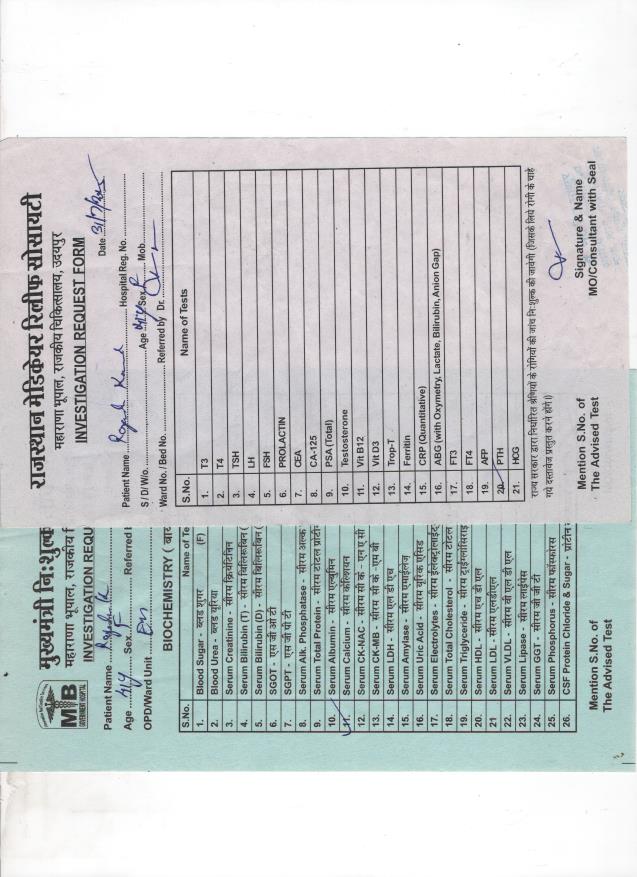 राजस्थान मेडिकेयर रिलीफ सोसायटी
महाराणा भूपाल, राजकीय चिकित्सालय, उदयपुर
INVESTIGATION REQUEST FORM
Date 3/7/
Patient Name Hospital Reg. No.
S / D / W/o. Age Sex Mob.
Ward No. / Bed No. Referred by Dr.
S.No. Name of Tests
1. T3
2. T4
3. TSH
4. LH
5. FSH
6. PROLACTIN
7. CEA
8. CA-125
9. PSA (Total)
10. Testosterone
11. Vit B12
12. Vit D3
13. Trop-T
14. Ferritin
15. CRP (Quantitative)
16. ABG (with Oxymetry, Lactate, Bilirubin, Anion Gap)
17. FT3
18. FT4
19. AFP
20. PTH
21. HCG
राज्य सरकार द्वारा निर्धारित श्रेणियों के रोगियों की जांच निःशुल्क की जावेगी (जिसके लिये रोगी के चाहे
गये दस्तावेज प्रस्तुत करने होंगे।)
Mention S.No. of
The Advised Test
Signature & Name
MO/Consultant with Seal
MB
GOVERNMENT HOSPITAL
मुख्यमंत्री निःशुल्क
महाराणा भूपाल, राजकीय
INVESTIGATION REQU
Patient Name
Age Sex F Referred
OPD/Ward Unit
BIOCHEMISTRY
S.No. Name of Te
1. Blood Sugar - ब्लड शुगर (F)
2. Blood Urea - ब्लड यूरिया
3. Serum Creatinine - सीरम क्रियटिनिन
4. Serum Bilirubin (T) - सीरम बिलिरूबिन (
5. Serum Bilirubin (D) - सीरम बिलिरूबिन (
6. SGOT - एस जी ओ टी
7. SGPT - एस जी पी टी
8. Serum Alk. Phosphatase - सीरम अल्क
9. Serum Total Protein - सीरम टोटल प्रोटीन
10. Serum Albumin - सीरम एल्बुमिन
11. Serum Calcium - सीरम कैल्शियम
12. CK-NAC - सीरम सी के - एन ए सी
13. CK-MB - सीरम सी के - एम बी
14. Serum LDH - सीरम एल डी एच
15. Serum Amylase - सीरम एमाईलेज
16. Serum Uric Acid - सीरम यूरिक एसिड
17. Serum Electrolytes - सीरम ईलेक्ट्रोलाईट
18. Serum Total Cholesterol - सीरम टोटल
19. Serum Triglyceride - सीरम ट्राईग्लीसिराइ
20. Serum HDL - सीरम एच डी एल
21 Serum LDL - सीरम एलडीएल
22. Serum VLDL - सीरम वी एल डी एल
23. Serum Lipase - सीरम लाईपेस
24. Serum GGT - सीरम जी जी टी
25. Serum Phosphorus - सीरम फॉस्फोरस
26. CSF Protein Chloride & Sugar - प्रोटीन
Mention S.No. of
The Advised Test